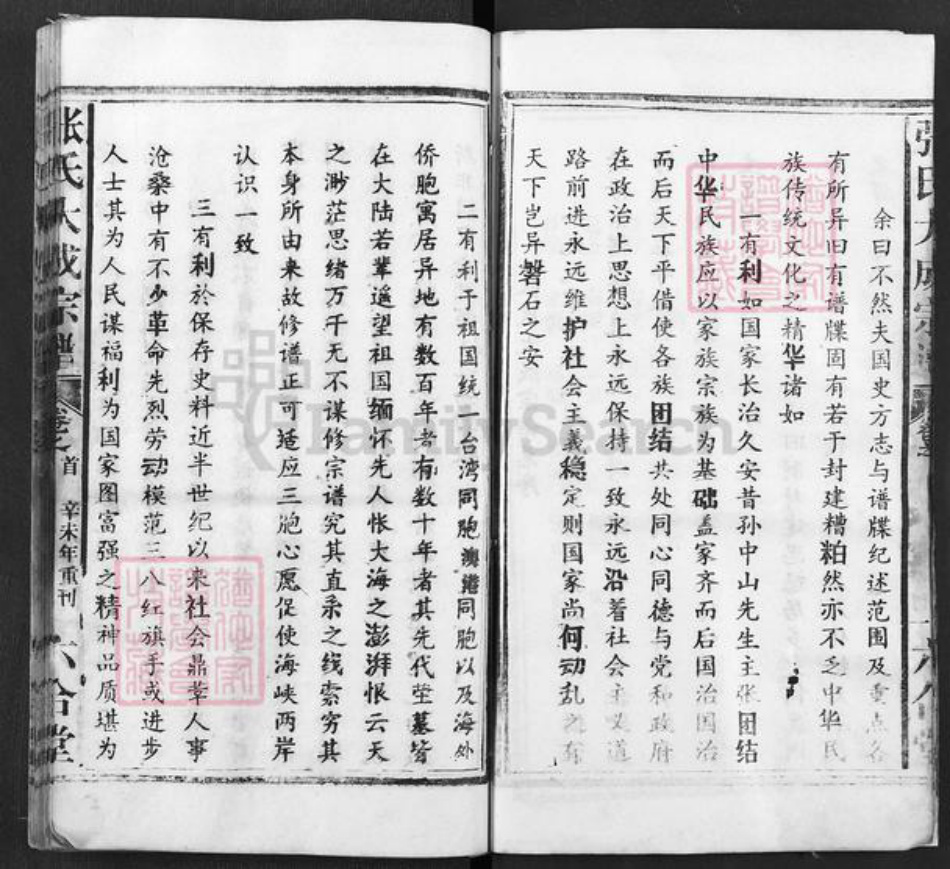 余曰不然夫国史方志与谱牒纪述范围及重点各
有所异曰有谱牒固有若于封建糟粕然亦不乏中华民
族传统文化之精华诸如
一有利如国家长治久安昔孙中山先生主张团结
中华民族应以家族宗族为基础盖家齐而后国治国治
而后天下平借使各族团结共处同心同德与党和政府
在政治上思想上永远保持一致永远沿着社会主义道
路前进永远维护社会主义稳定则国家尚何动乱之有
天下岂异磐石之安
张氏大成宗谱
二有利于祖国统一台湾同胞澳港同胞以及海外
侨胞寓居异地有数百年者有数十年者其先代茔墓皆
在大陆若辈遥望祖国缅怀先人怅大海之澎湃恨云天
之渺茫思绪万千无不谋修宗谱究其直系之线索穷其
本身所由来故修谱正可适应三胞心愿促使海峡两岸
认识一致
三有利於保存史料近半世纪以来社会鼎革人事
沧桑中有不少革命先烈劳动模范三八红旗手或进步
人士其为人民谋福利为国家图富强之精神品质堪为
张氏大成宗谱 卷之首 辛未年重刊 六合堂
FamilySearch